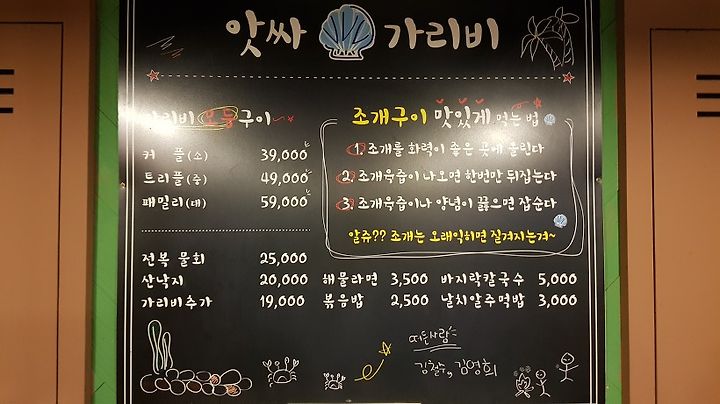 앗싸 가리비
가리비모둠구이
커 플(소) 39,000
트리플(중) 49,000
패밀리(대) 59,000
조개구이 맛있게 먹는 법
1. 조개를 화력이 좋은 곳에 올린다
2. 조개육즙이 나오면 한번만 뒤집는다
3. 조개육즙이나 양념이 끓으면 잡순다
알쥬?? 조개는 오래익히면 질겨지는겨~
전복 물회 25,000
산낙지 20,000
가리비추가 19,000
해물라면 3,500
볶음밥 2,500
바지락칼국수 5,000
날치알주먹밥 3,000
김철수, 김영희